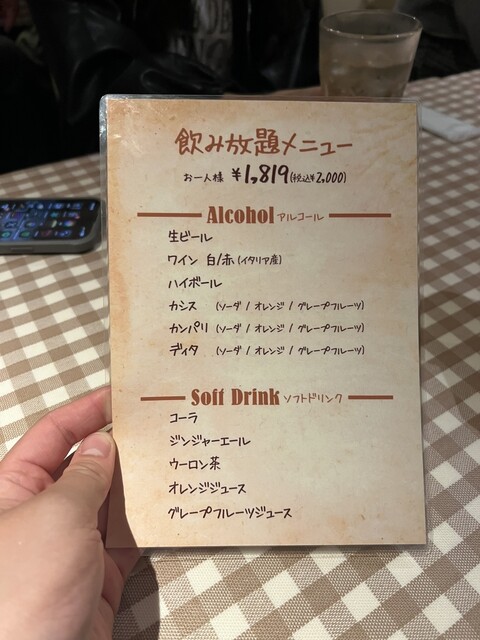 飲み放題メニュー
お一人様 ¥1,819(税込¥2,000)
Alcohol アルコール
生ビール
ワイン 白/赤(イタリア産)
ハイボール
カシス (ソーダ / オレンジ / グレープフルーツ)
カンパリ (ソーダ / オレンジ / グレープフルーツ)
ディタ (ソーダ / オレンジ / グレープフルーツ)
Soft Drink ソフトドリンク
コーラ
ジンジャーエール
ウーロン茶
オレンジジュース
グレープフルーツジュース